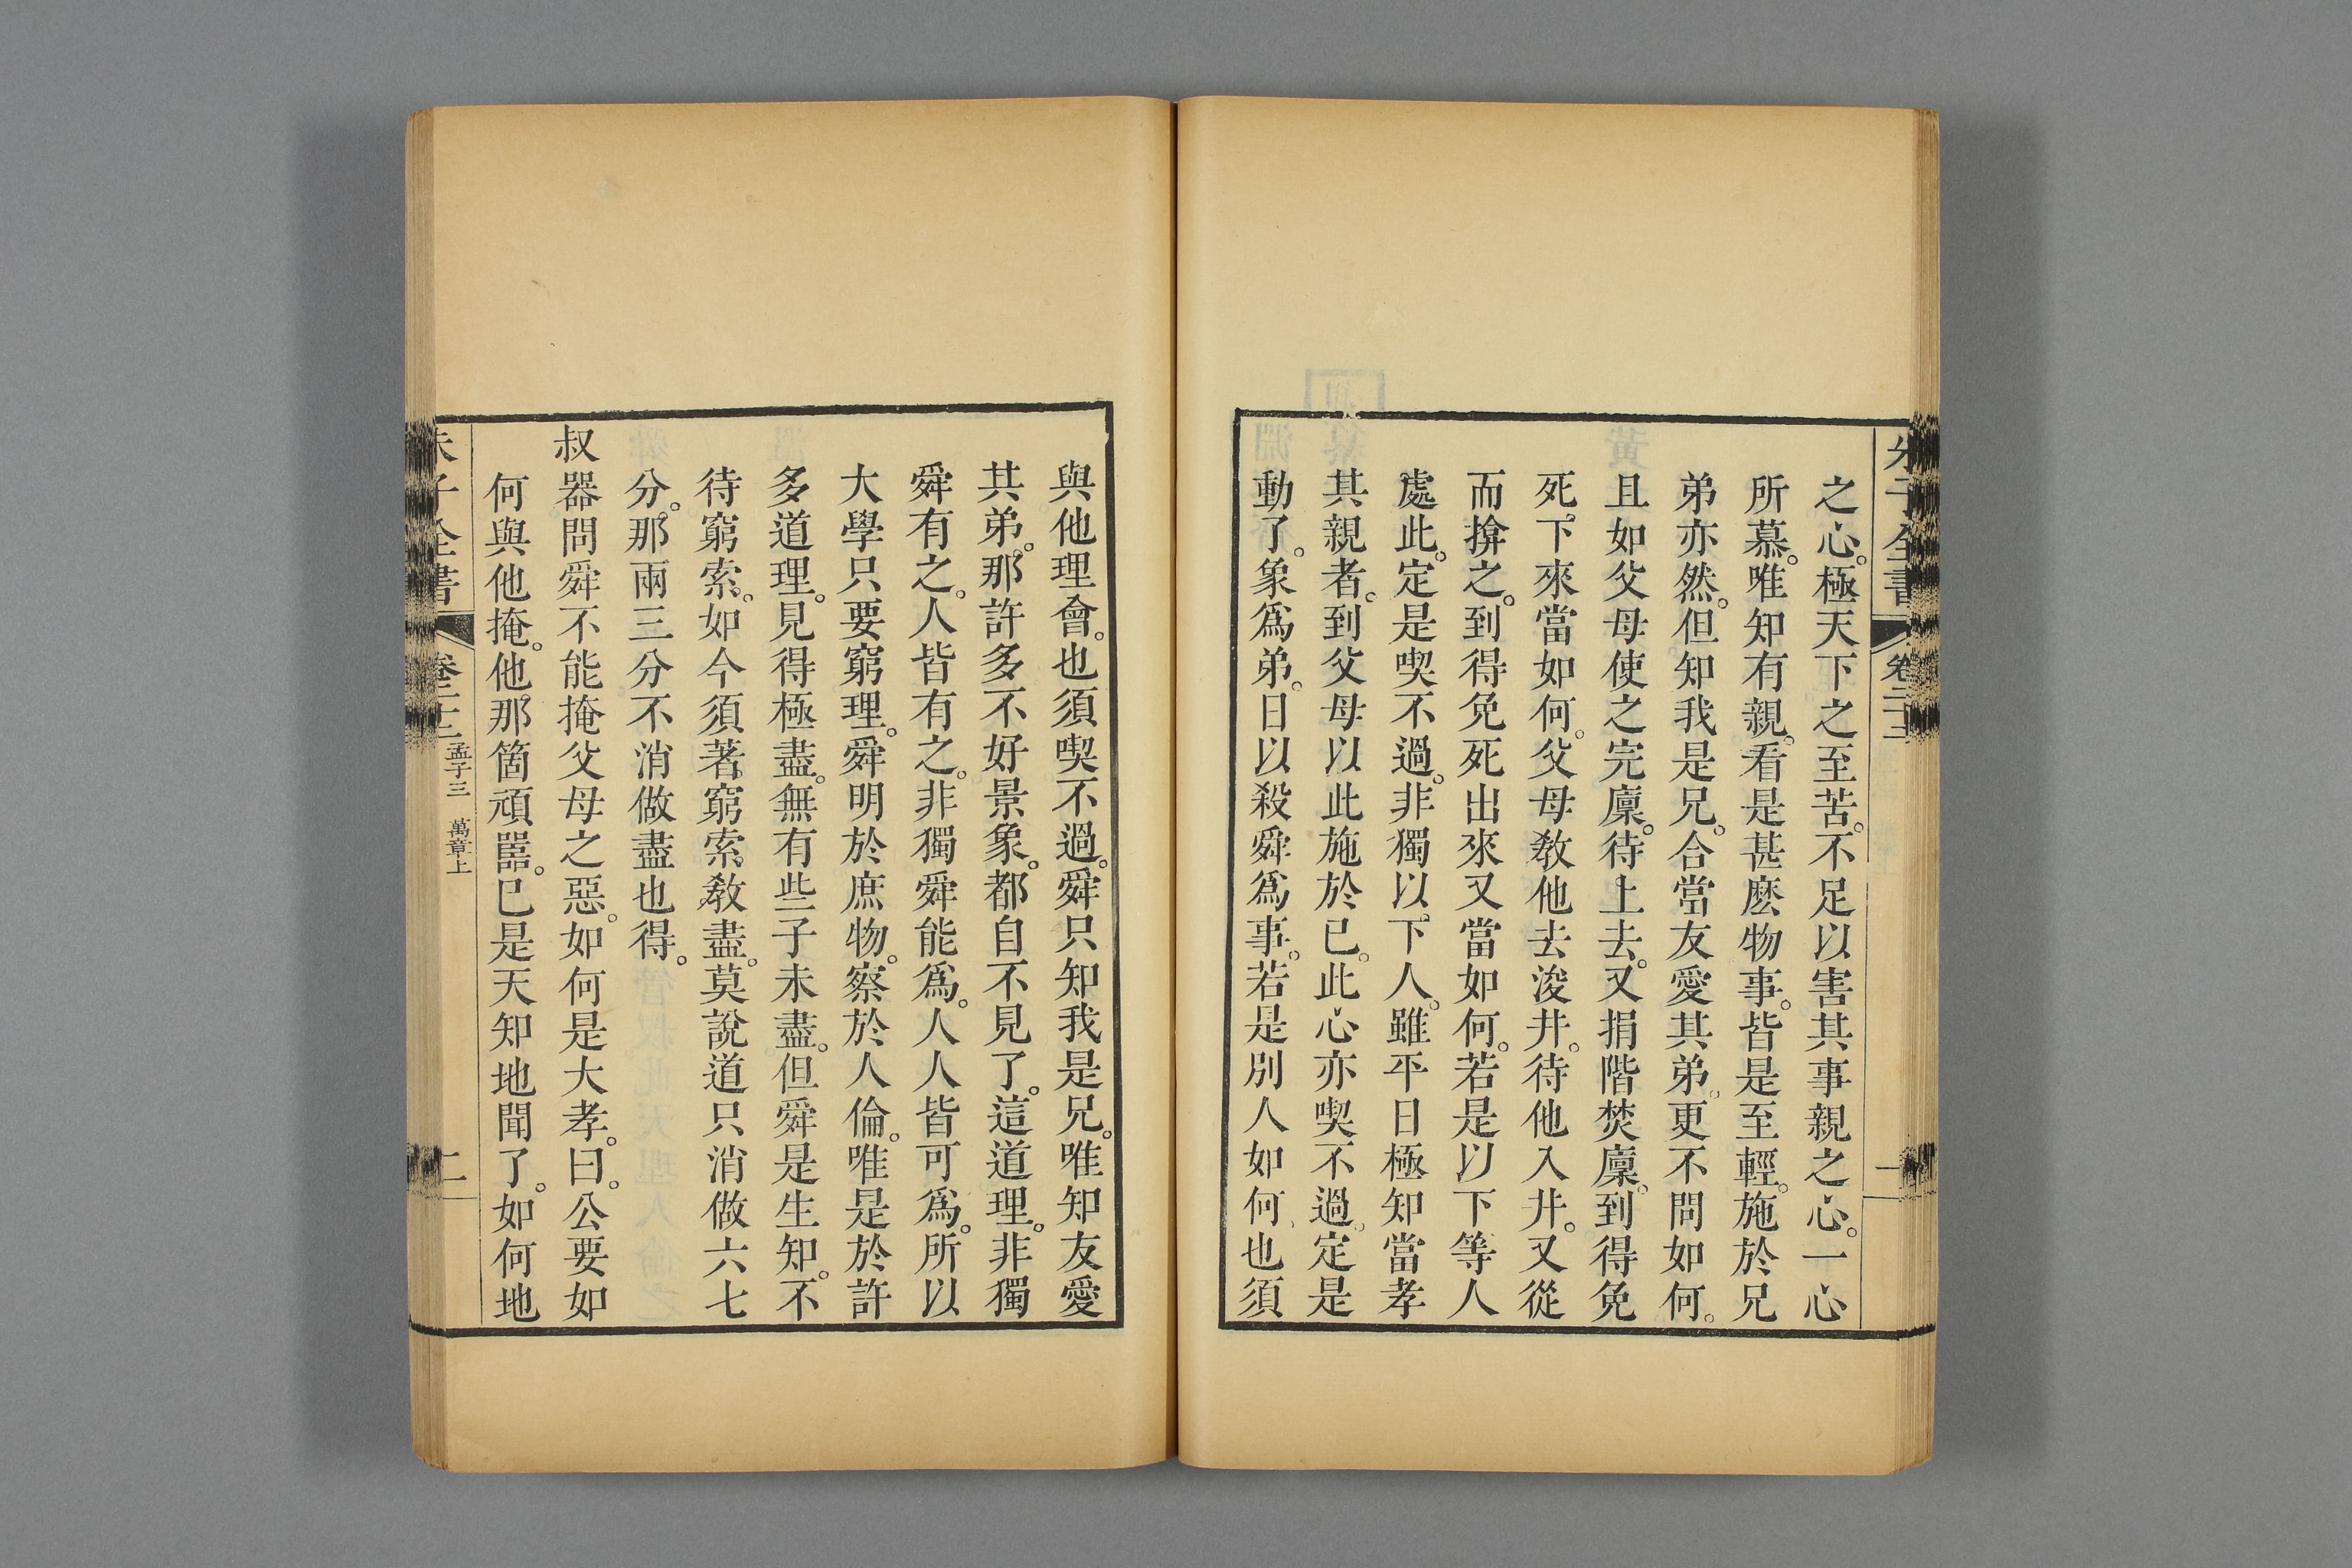 朱子全書 卷二十二 一
之心。極天下之至苦。不足以害其事親之心。一心
所慕。唯知有親。看是甚麽物事。皆是至輕。施於兄
弟亦然。但知我是兄。合當友愛其弟。更不問如何。
且如父母使之完廩。待上去。又捐階焚廩。到得免
死。下來當如何。父母敎他去浚井。待他入井。又從
而揜之。到得免死出來又當如何。若是以下等人
處此。定是喫不過。非獨以下人。雖平日極知當孝
其親者。到父母以此施於已。此心亦喫不過。定是
動了。象爲弟。日以殺舜爲事。若是別人如何也須
與他理會。也須喫不過。舜只知我是兄。唯知友愛
其弟。那許多不好景象。都自不見了。這道理。非獨
舜有之。人皆有之。非獨舜能爲。人人皆可爲。所以
大學只要窮理。舜明於庶物。察於人倫。唯是於許
多道理。見得極盡。無有些子未盡。但舜是生知。不
待窮索。如今須著窮索敎盡。莫說道只消做六七
分。那兩三分不消做盡也得。
叔器問舜不能掩父母之惡。如何是大孝。曰。公要如
何與他掩。他那箇頑嚚。已是天知地聞了。如何地
朱子全書 卷二十二 孟子三 萬章上 二